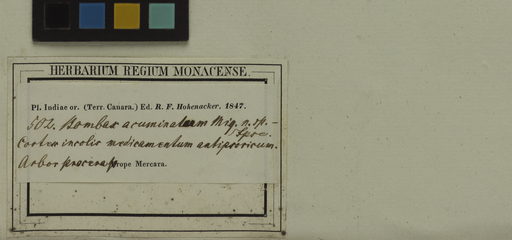 HERBARIUM REGIUM MONACENSE.
Pl. Indiae or. (Terr. Canara.) Ed. R. F. Hohenacker. 1847.
502. Bombax acuminatum Miq. n. sp. –
Cortex incolis medicamentum antipsoricum.
Arbor procera prope Mercara.